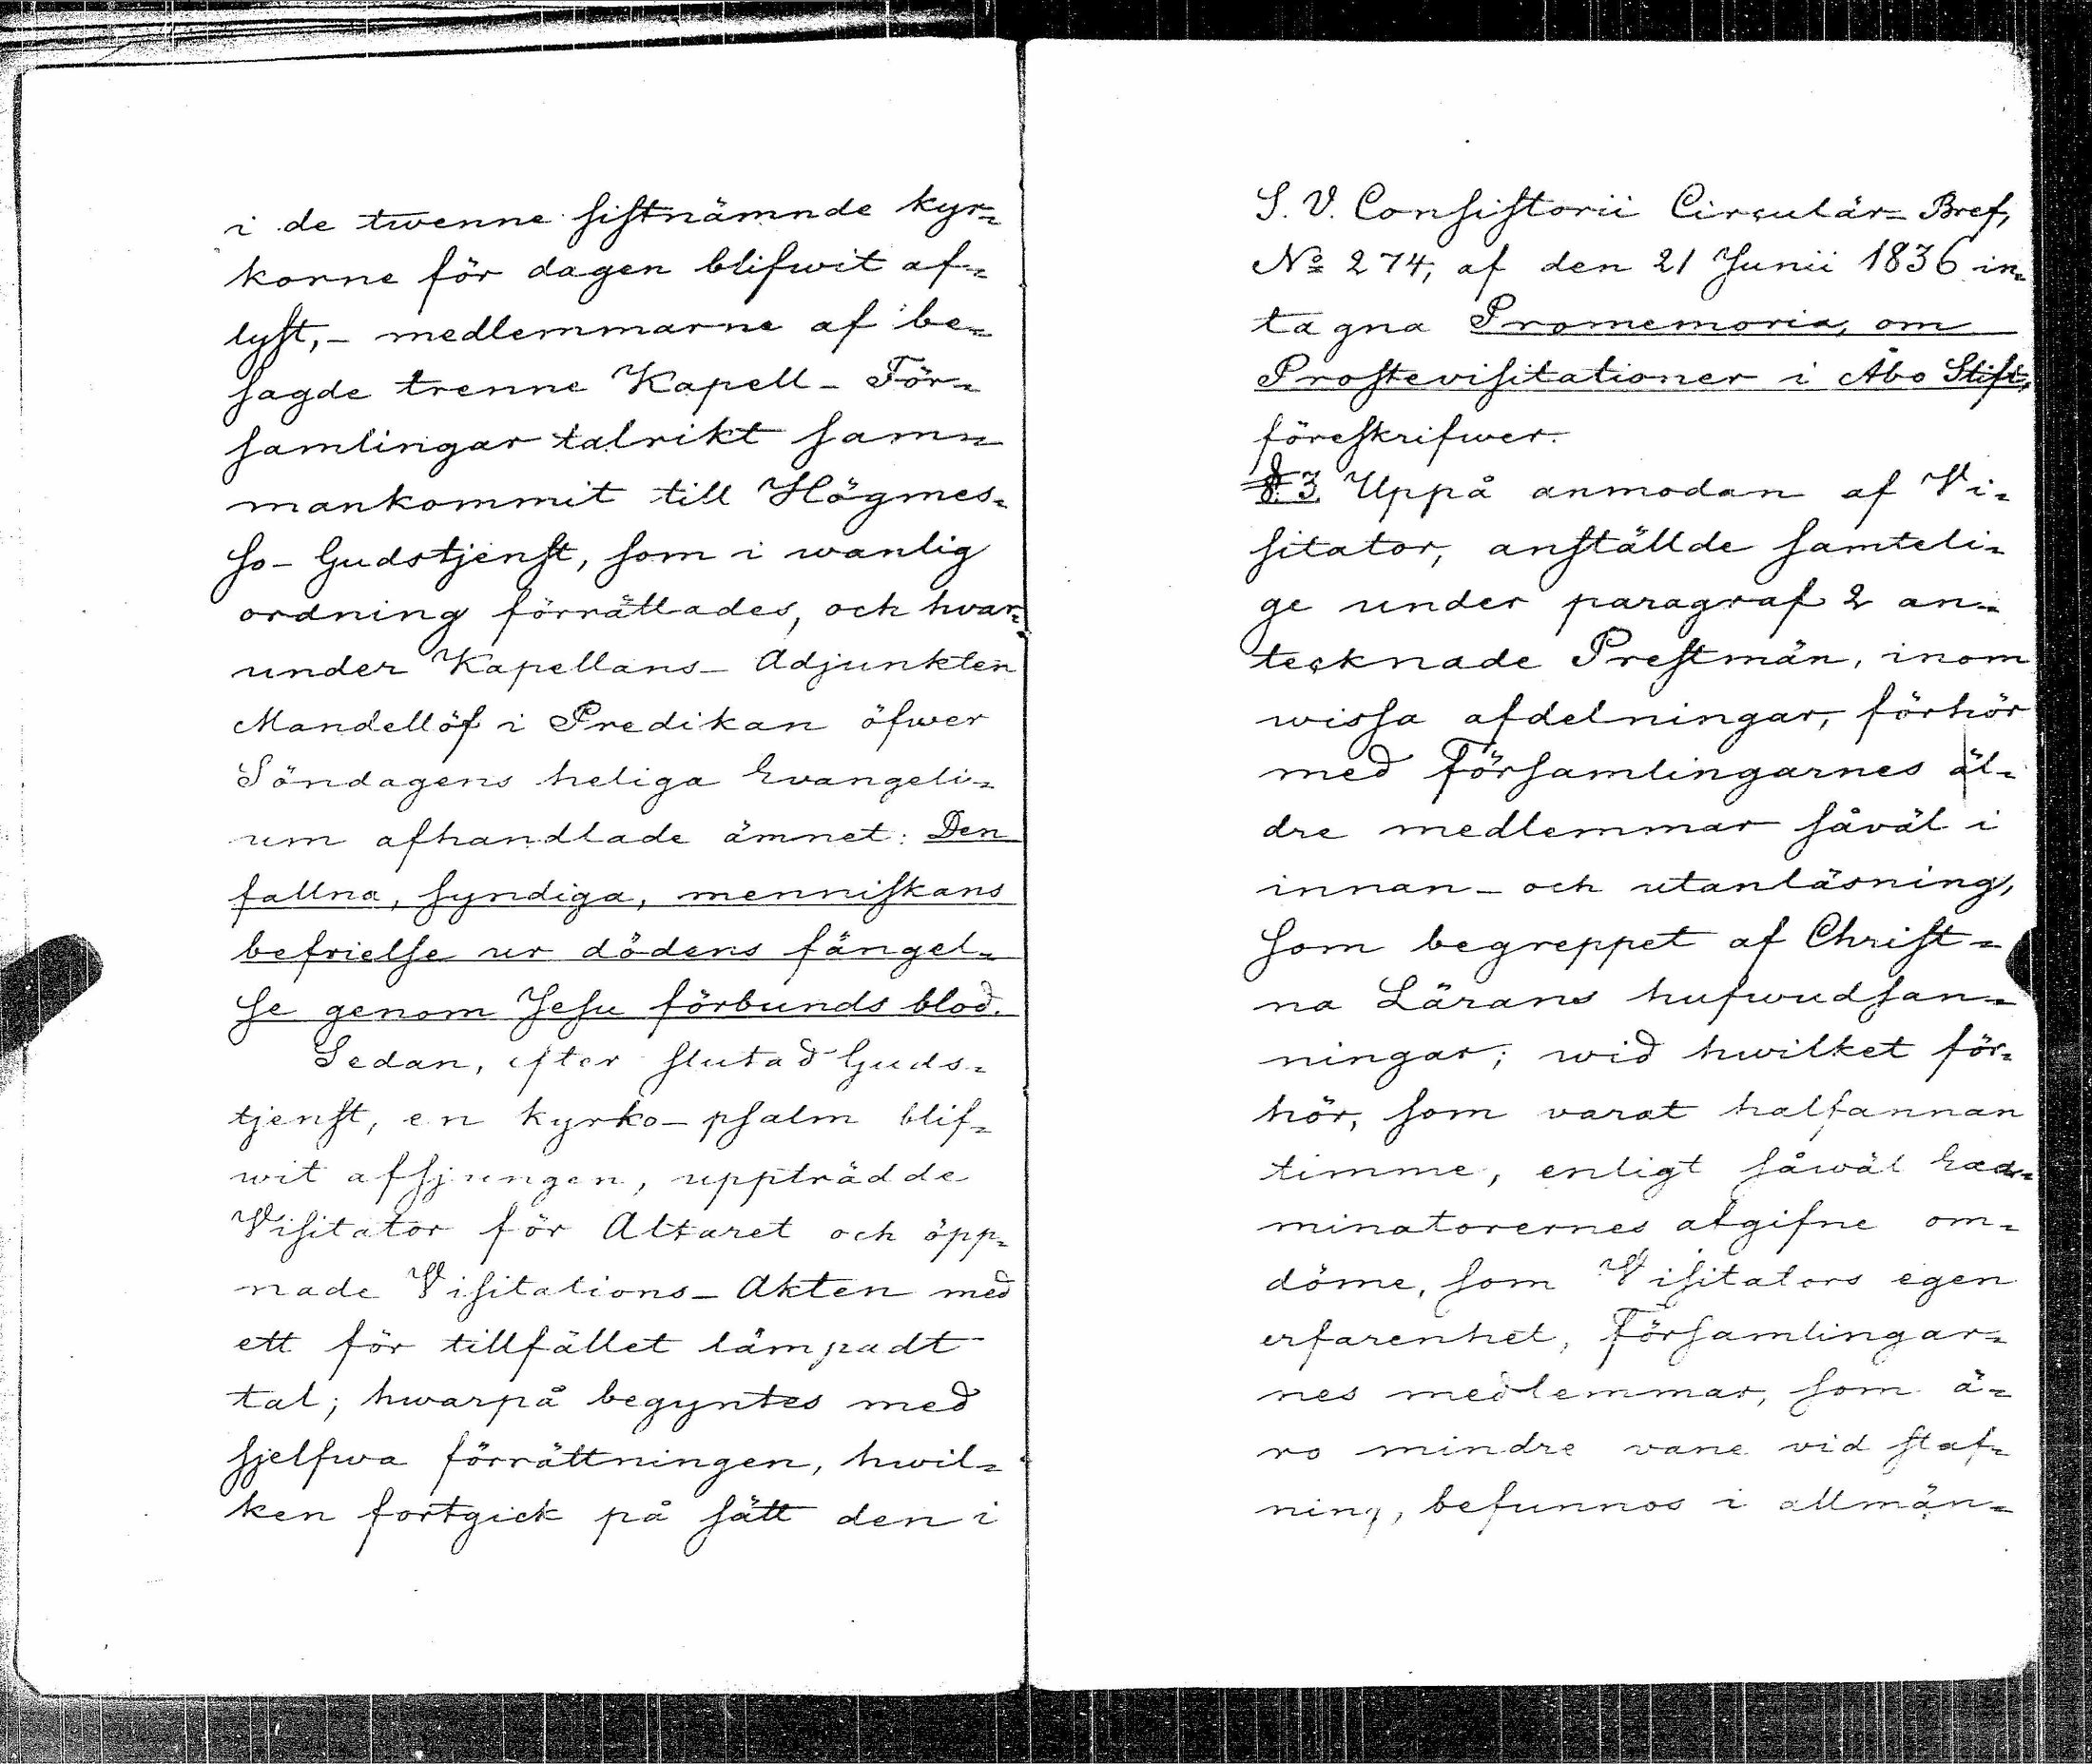 i de twenne sistnämnde kyr=
korne för dagen blifwit af=
lyst,- medlemmarne af be=
sagde trenne Kapell-För=
samlingar talrikt sam=
mankommit till Högmes=
so-Gudstjenst, som i wanlig
ordning förrättades, och hvar=
under Kapellans-Adjunkten
Mandellöf i Predikan öfwer
Söndagens heliga Evangeli=
um afhandlade ämnet: Den
fallna, syndiga, menniskans
befrielse ur dödens fängel=
se genom Jesu förbunds blod.
Sedan, efter slutad Guds=
tjenst, en kyrko-psalm blif=
wit afsjungen, uppträdde
Visitator för Altaret och öpp=
nade Visitations-Akten med
ett för tillfället lämpadt
tal; hwarpå begyntes med
sjelfwa förrättningen, hwil=
ken fortgick på sätt den i
S. V. Consistorii Circulär-Bref,
No 274, af den 21 Junii 1836 in=
tagna Promemoria, om
Prostevisitationer i Åbo Stift,
föreskrifwer.
§ 3. Uppå anmodan af Vi=
sitator, anställde samteli=
ge under paragraf 2 an=
tecknade Prestmän, inom
wissa afdelningar, förhör
med Församlingarnes äl=
dre medlemmar såväl i
innan- och utanläsning,
som begreppet af Christ=
na Lärans hufwudsan=
ningar; wid hwilket för=
hör, som varat halfannan
timme, enligt såwäl Exa=
minatorernes afgifne om=
döme, som Visitators egen
erfarenhet, Församlingar=
nes medlemmar, som ä=
ro mindre vane vid staf=
ning, befunnos i allmän=